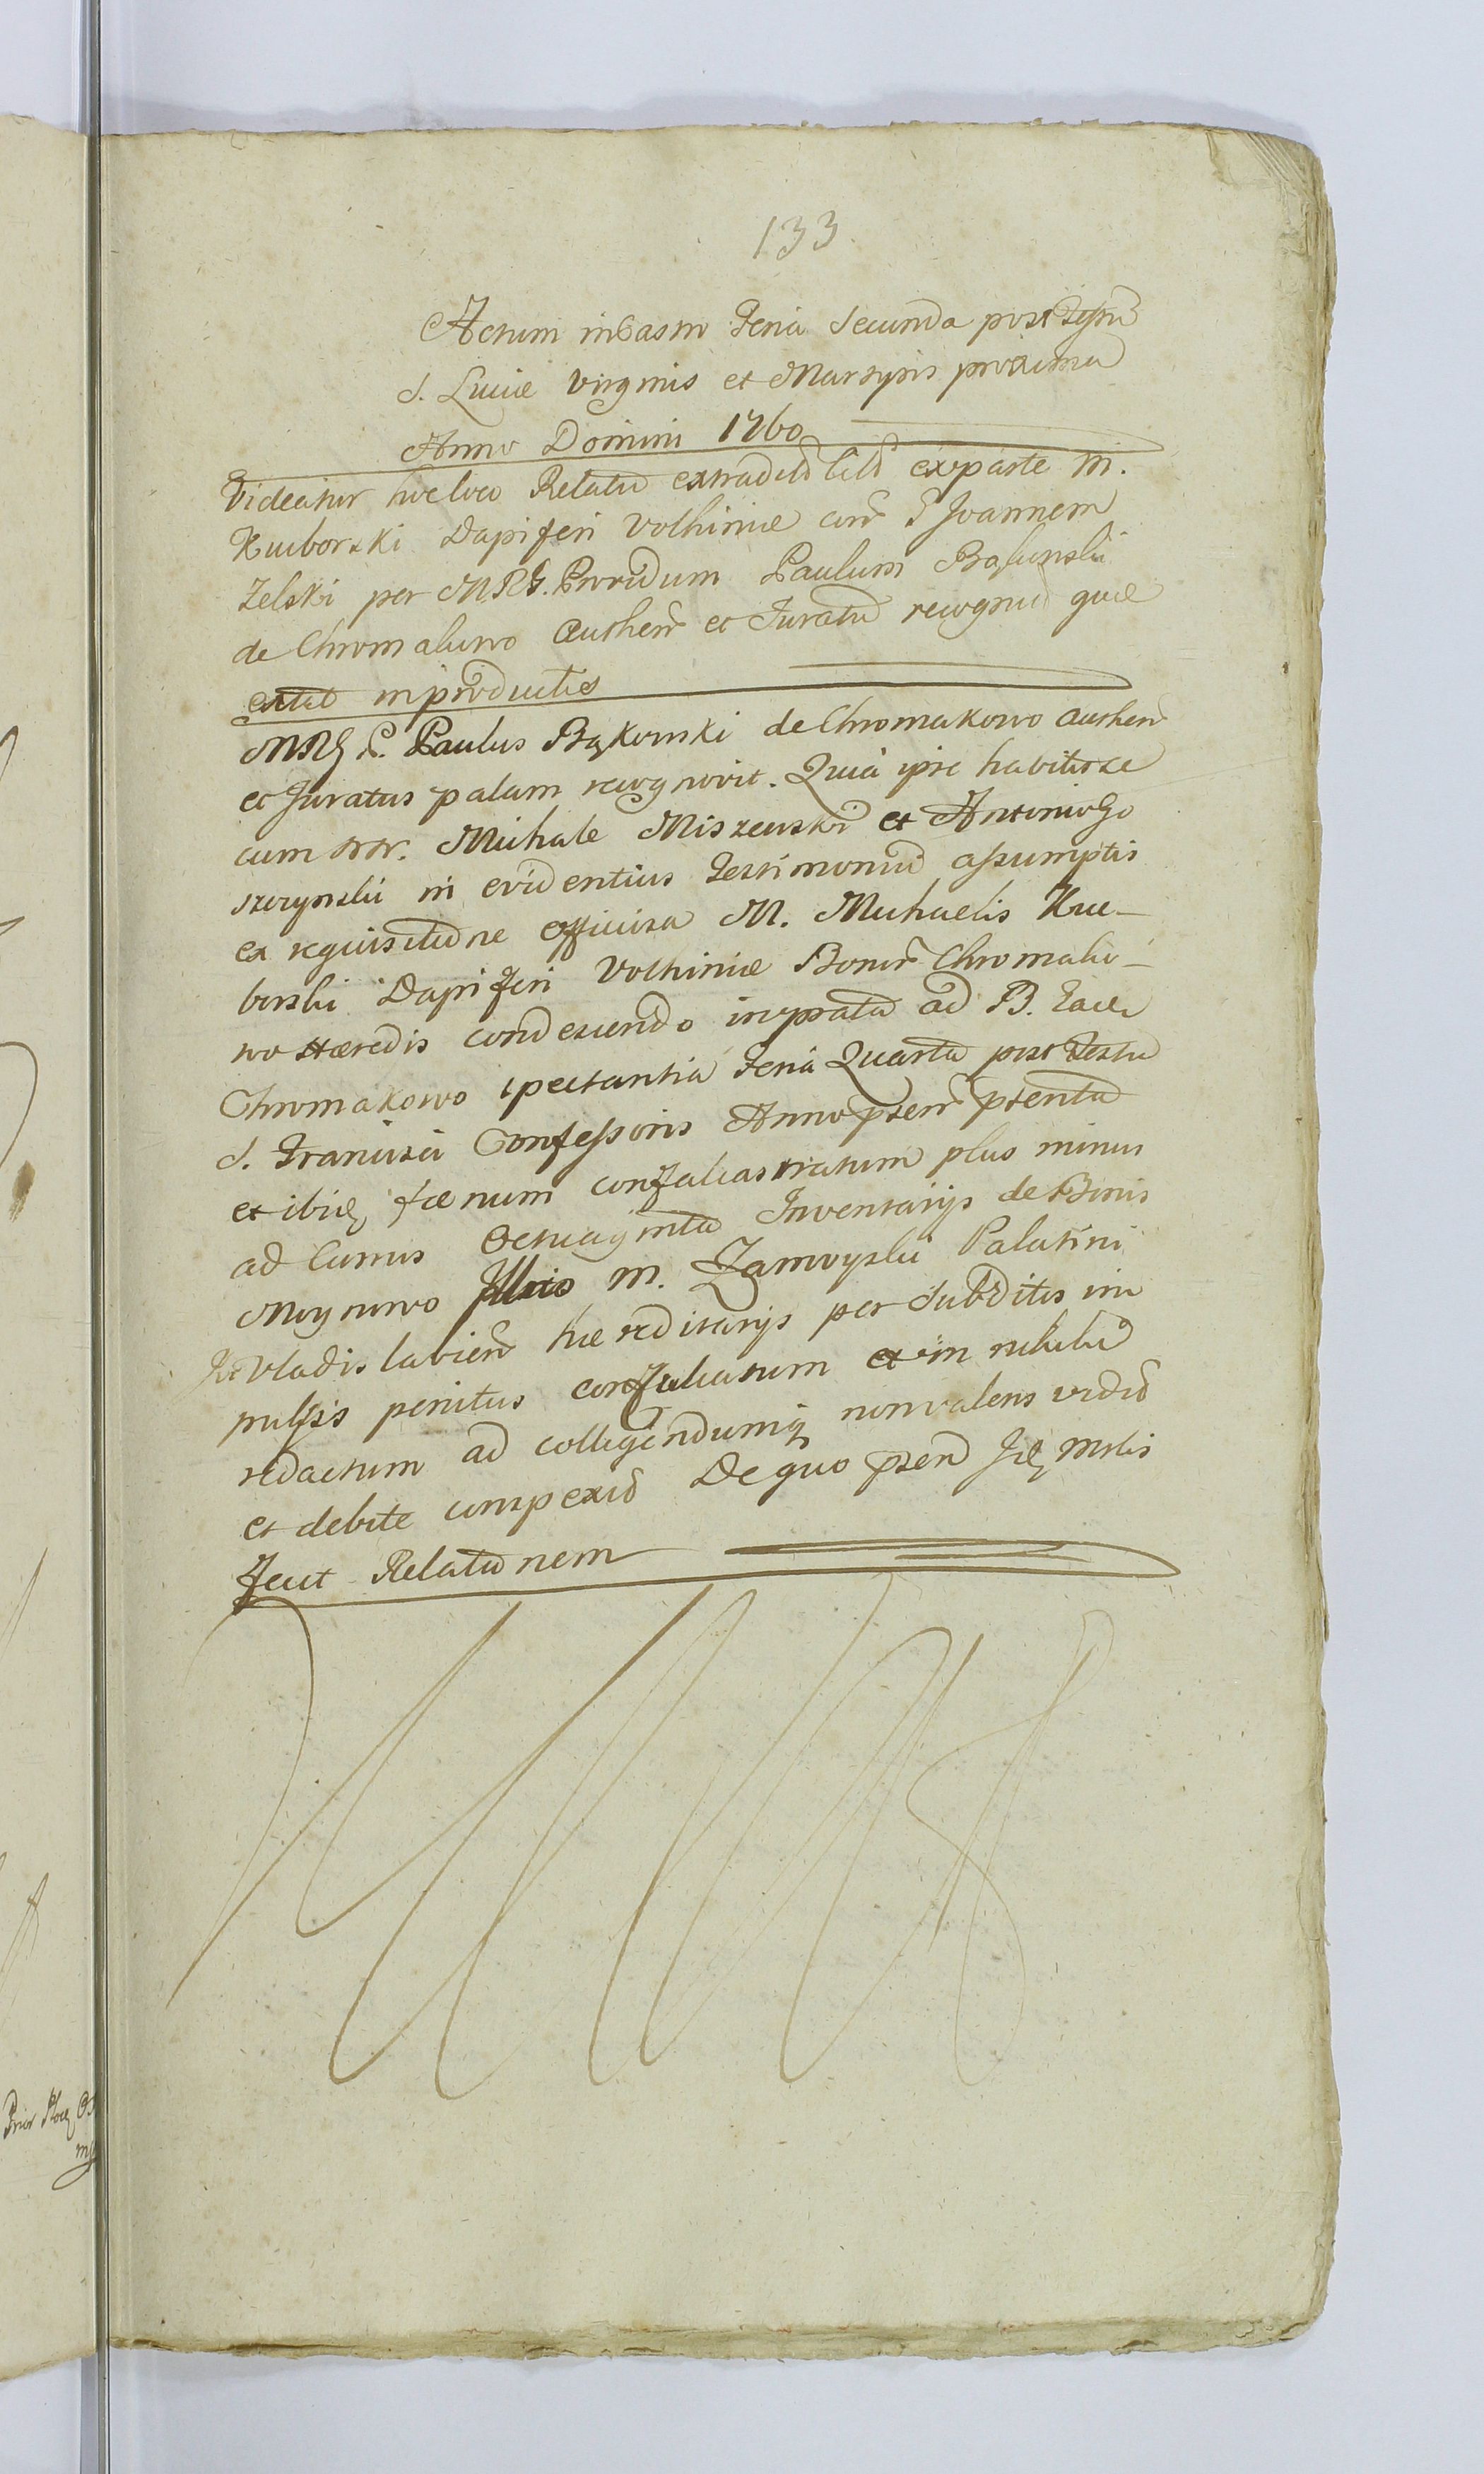 133
Actum in Castro Feria Secunda post Festum
S. Luciæ Virginis et Martyris proxima
Anno Domini 1760
Videatur hic loco Relatio extradi exparte M.
Kuiborski Dapiferi Volhiniæ con Joannem
Zelski per MRG. Providum Paulum Bąkowski
de Chromakowo Authen et Juratum recogni quæ
extat in productis
MRG P. Paulus Bąkowski de Chromakowo authen
et Juratus palam recognovit. Quia ipse habitis se
cum NN. Michale Miszewski et Antonio Go
szczynski in evidentius Testimonium assumptis
ex requisitione officiosa M. Michaelis Kuc-
borski Dapiferi Volhiniæ Bonor Chromako-
wo Hæredis condescendo in prata ad B.
Chromakowo spectantia Feria Quarta post Festum
S. Francisci Confessoris Anno psen psentia
et ibiq fænum
ad Currus Octuaginta Inventarijs de Bonis
Illris M. Zamoyski Palatini
Vladislavien hæreditarijs per Subditos im
pulsis penitus et in nihilum
redactum ad colligendumq non valens vidit
et debite conspexit De quo psen
fecit Relationem
Prior